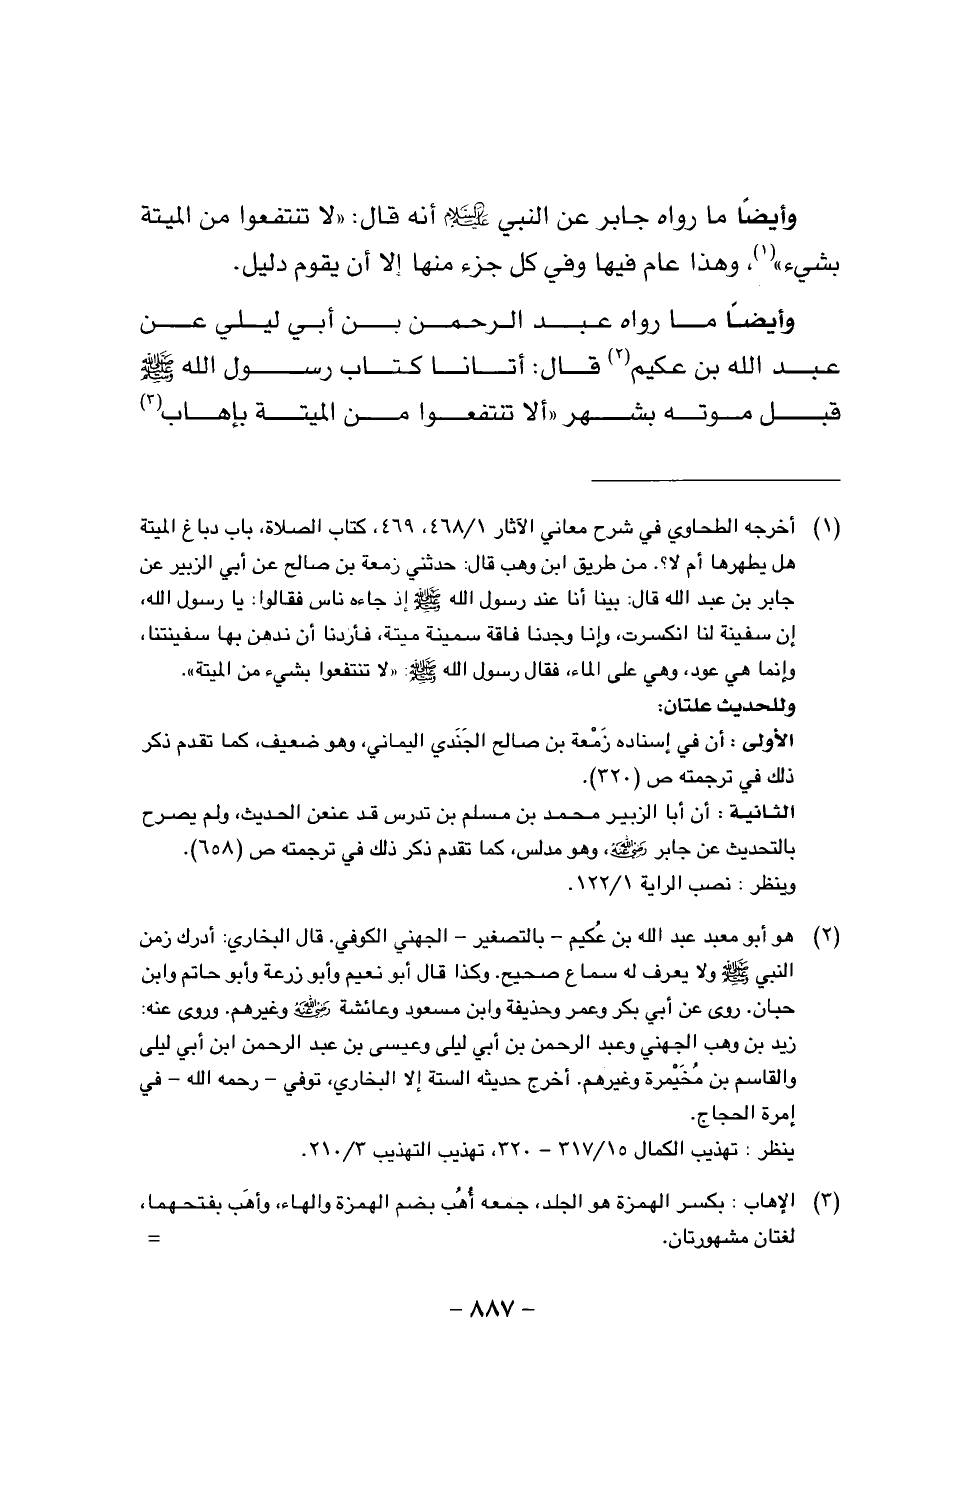 وأيضًا ما رواه جابر عن النبي عليه السلام أنه قال: «لا تنتفعوا من الميتة
بشيء»(١)، وهذا عام فيها وفي كل جزء منها إلا أن يقوم دليل.
وأيضًا ما رواه عبد الرحمن بن أبي ليلي عن
عبد الله بن عكيم(٢) قال: أتانا كتاب رسول الله ﷺ
قبل موته بشهر «ألا تنتفعوا من الميتة بإهاب(٣)
(١) أخرجه الطحاوي في شرح معاني الآثار ٤٦٨/١، ٤٦٩، كتاب الصلاة، باب دباغ الميتة
هل يطهرها أم لا؟. من طريق ابن وهب قال: حدثني زمعة بن صالح عن أبي الزبير عن
جابر بن عبد الله قال: بينا أنا عند رسول الله ﷺ إذ جاءه ناس فقالوا: يا رسول الله،
إن سفينة لنا انكسرت، وإنا وجدنا فاقة سمينة ميتة، فأردنا أن ندهن بها سفينتنا،
وإنما هي عود، وهي على الماء، فقال رسول الله ﷺ: «لا تنتفعوا بشيء من الميتة».
وللحديث علتان:
الأولى : أن في إسناده زَمْعة بن صالح الجَنَدي اليماني، وهو ضعيف، كما تقدم ذكر
ذلك في ترجمته ص (٣٢٠).
الثانية : أن أبا الزبير محمد بن مسلم بن تدرس قد عنعن الحديث، ولم يصرح
بالتحديث عن جابر رضي الله عنه، وهو مدلس، كما تقدم ذكر ذلك في ترجمته ص (٦٥٨).
وينظر : نصب الراية ١٢٢/١.
(٢) هو أبو معبد عبد الله بن عُكيم – بالتصغير – الجهني الكوفي. قال البخاري: أدرك زمن
النبي ﷺ ولا يعرف له سماع صحيح. وكذا قال أبو نعيم وأبو زرعة وأبو حاتم وابن
حبان. روى عن أبي بكر وعمر وحذيفة وابن مسعود وعائشة رضي الله عنهم وغيرهم. وروى عنه:
زيد بن وهب الجهني وعبد الرحمن بن أبي ليلى وعيسى بن عبد الرحمن ابن أبي ليلى
والقاسم بن مُخَيْمرة وغيرهم. أخرج حديثه الستة إلا البخاري، توفي – رحمه الله – في
إمرة الحجاج.
ينظر : تهذيب الكمال ٣١٧/١٥ – ٣٢٠، تهذيب التهذيب ٢١٠/٣.
(٣) الإهاب : بكسر الهمزة هو الجلد، جمعه أُهُب بضم الهمزة والهاء، وأهَب بفتحهما،
لغتان مشهورتان. =
– ٨٨٧ –